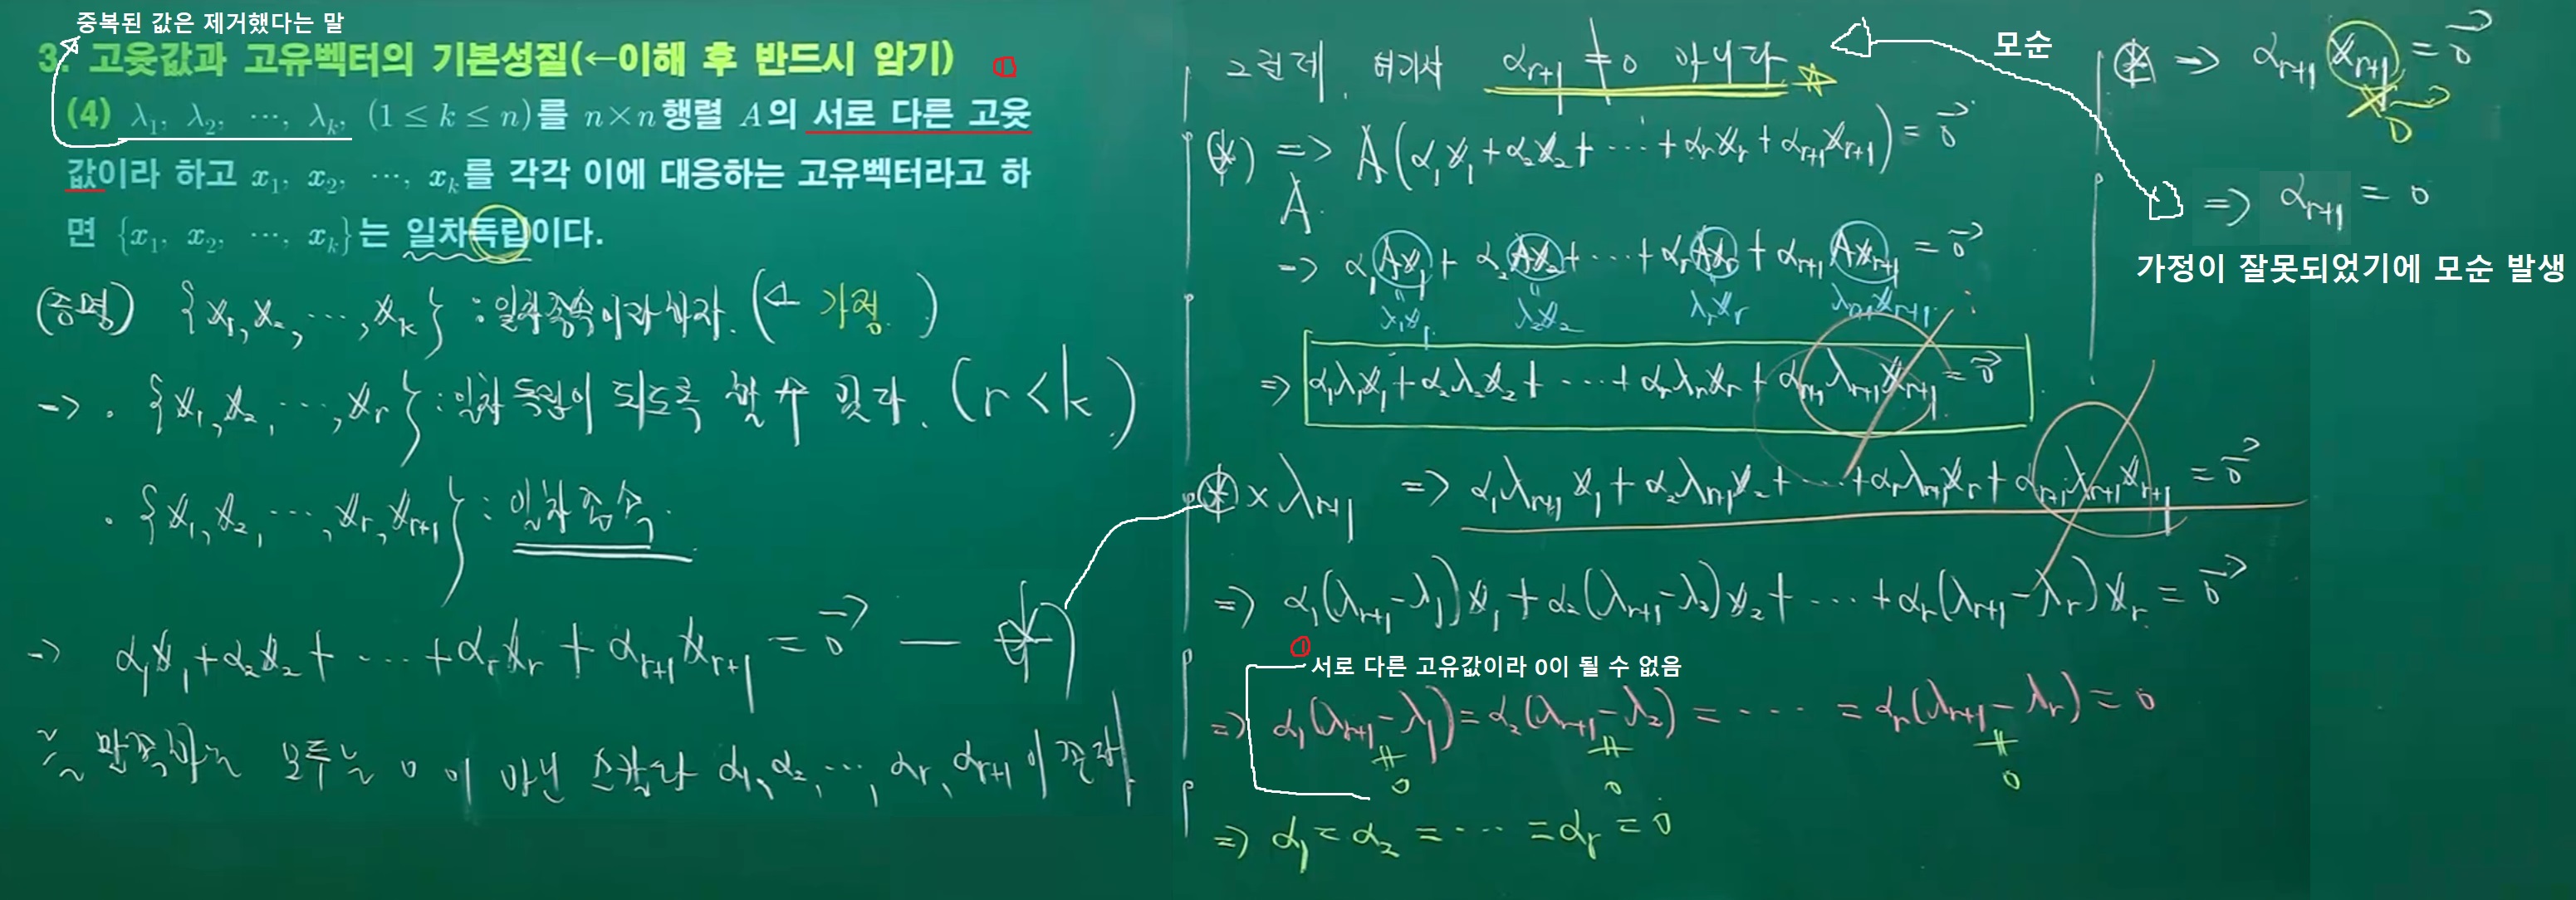 중복된 값은 제거했다는 말
3. 고윳값과 고유벡터의 기본성질(←이해 후 반드시 암기)
①
(4) λ₁, λ₂, ⋯, λₖ, (1 ≤ k ≤ n)를 n×n 행렬 A의 서로 다른 고윳
값이라 하고 x₁, x₂, ⋯, xₖ를 각각 이에 대응하는 고유벡터라고 하
면 {x₁, x₂, ⋯, xₖ}는 일차독립이다.
(증명) {x₁, x₂, ⋯, xₖ} : 일차종속이라 하자. (← 가정)
→ · {x₁, x₂, ⋯, xᵣ} : 일차독립이 되도록 할 수 있다. (r < k)
· {x₁, x₂, ⋯, xᵣ, xᵣ₊₁} : 일차종속.
→ α₁x₁ + α₂x₂ + ⋯ + αᵣxᵣ + αᵣ₊₁xᵣ₊₁ = 0⃗ — ⊛
를 만족하는 모두는 0이 아닌 스칼라 α₁, α₂, ⋯, αᵣ, αᵣ₊₁이 존재
그런데, 여기서 αᵣ₊₁ ≠ 0 아니다 ☆
모순
⊛ ⇒ A(α₁x₁ + α₂x₂ + ⋯ + αᵣxᵣ + αᵣ₊₁xᵣ₊₁) = 0⃗
A
→ α₁Ax₁ + α₂Ax₂ + ⋯ + αᵣAxᵣ + αᵣ₊₁Axᵣ₊₁ = 0⃗
λ₁x₁ λ₂x₂ λᵣxᵣ λᵣ₊₁xᵣ₊₁
⇒ α₁λ₁x₁ + α₂λ₂x₂ + ⋯ + αᵣλᵣxᵣ + αᵣ₊₁λᵣ₊₁xᵣ₊₁ = 0⃗
⊛ × λᵣ₊₁ ⇒ α₁λᵣ₊₁x₁ + α₂λᵣ₊₁x₂ + ⋯ + αᵣλᵣ₊₁xᵣ + αᵣ₊₁λᵣ₊₁xᵣ₊₁ = 0⃗
⇒ α₁(λᵣ₊₁-λ₁)x₁ + α₂(λᵣ₊₁-λ₂)x₂ + ⋯ + αᵣ(λᵣ₊₁-λᵣ)xᵣ = 0⃗
①
서로 다른 고유값이라 0이 될 수 없음
⇒ α₁(λᵣ₊₁-λ₁) = α₂(λᵣ₊₁-λ₂) = ⋯ = αᵣ(λᵣ₊₁-λᵣ) = 0
≠ 0 ≠ 0 ≠ 0
⇒ α₁ = α₂ = ⋯ = αᵣ = 0
⊛ ⇒ αᵣ₊₁xᵣ₊₁ = 0⃗
≠ 0⃗
⇒ αᵣ₊₁ = 0
가정이 잘못되었기에 모순 발생